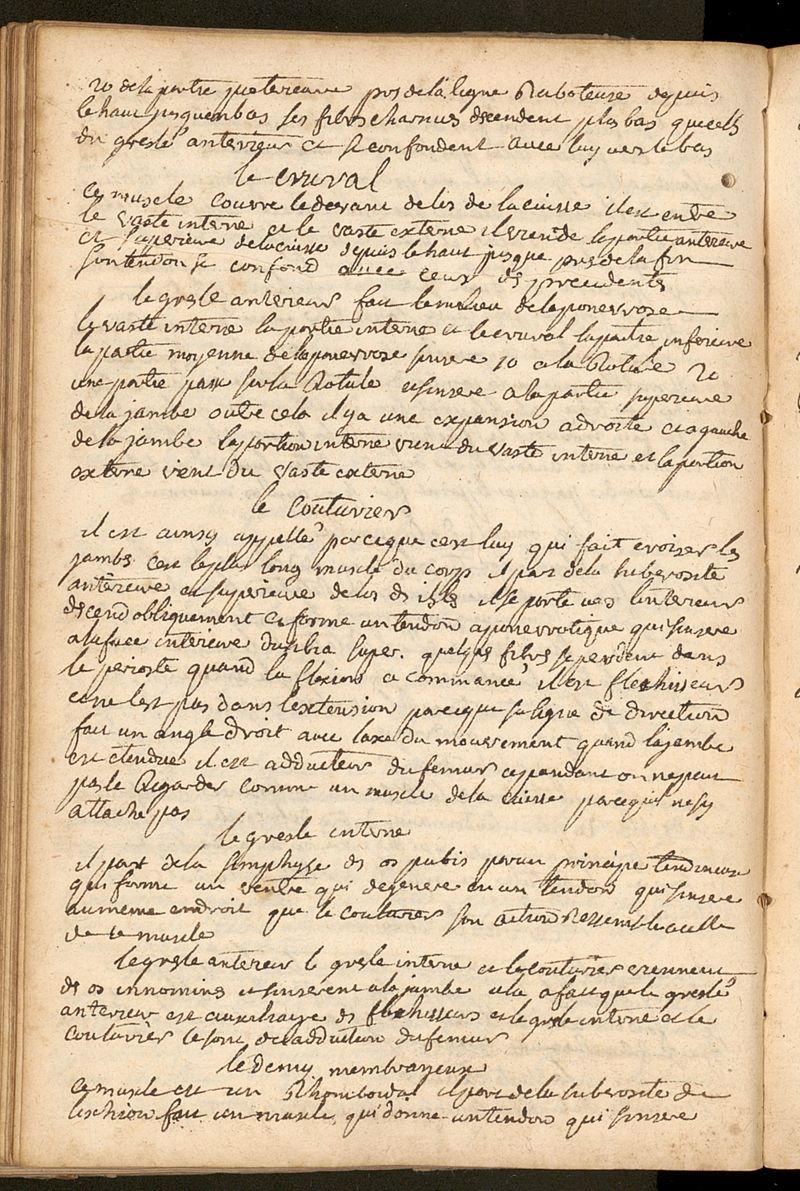 2o de la partie posterieure pres de la ligne Raboteuse depuis
le haut jusquenbas ses fibres charnues descendent plus bas que celles
du gresle anterieur et se confondent avec luy vers le bas
le crural
ce muscle couvre le devant de los de la cuisse il est entre
le vaste interne et le vaste externe il vient de la partie anterieure
et superieure de la cuisse depuis le haut jusque pres de la fin
son tendon se confond avec ceux des precedents
le gresle anterieur fait le milieu de laponevrose
le vaste interne la partie interne et le crural la partie inferieure
la partie moyenne de laponevrose sinsere 1o a la Rotule 2o
une partie passe sur la Rotule et sinsere a la partie superieure
de la jambe outre cela il y a une expansion a droite et a gauche
de la jambe la portion interne vient du vaste interne et la portion
externe vient du vaste externe
le couturier
il est ainsy appellé parceque cest luy qui fait croiser les
jambes cest le plus long muscle du corps il part de la tuberosité
anterieure et superieure de los des iles il se porte vers
descend obliquement et forme un tendon aponevrotique qui sinsere
a la face interieure du tibia super. quelques fibres se perdent dans
le perioste quand la flexion a commancé il est flechisseur
ce ne lest pas dans lextension parceque sa ligne de direction
fait un angle droit avec laxe du mouvement quand la jambe
est etendue il est adducteur du femur cependant on ne peut
pas le Regarder comme un muscle de la cuisse parcequil ne sy
attache pas
le gresle interne
il part de la simphyse des os pubis par un principe tendineux
qui forme un ventre qui degenere en un tendon qui sinsere
au meme endroit que le couturier son action Ressemble a celle
de ce muscle
le gresle anterieur le gresle interne et le couturier viennent
des os innominés et sinserent a la jambe cela a fait que le gresle
anterieur est auxiliaire des flechisseurs et le gresle interne et le
couturier le sont de ladduction du femur
le demy membraneux
ce muscle est un Rhomboidal il part de la tuberosité de
lischion fait un muscle qui donne un tendon qui sinsere